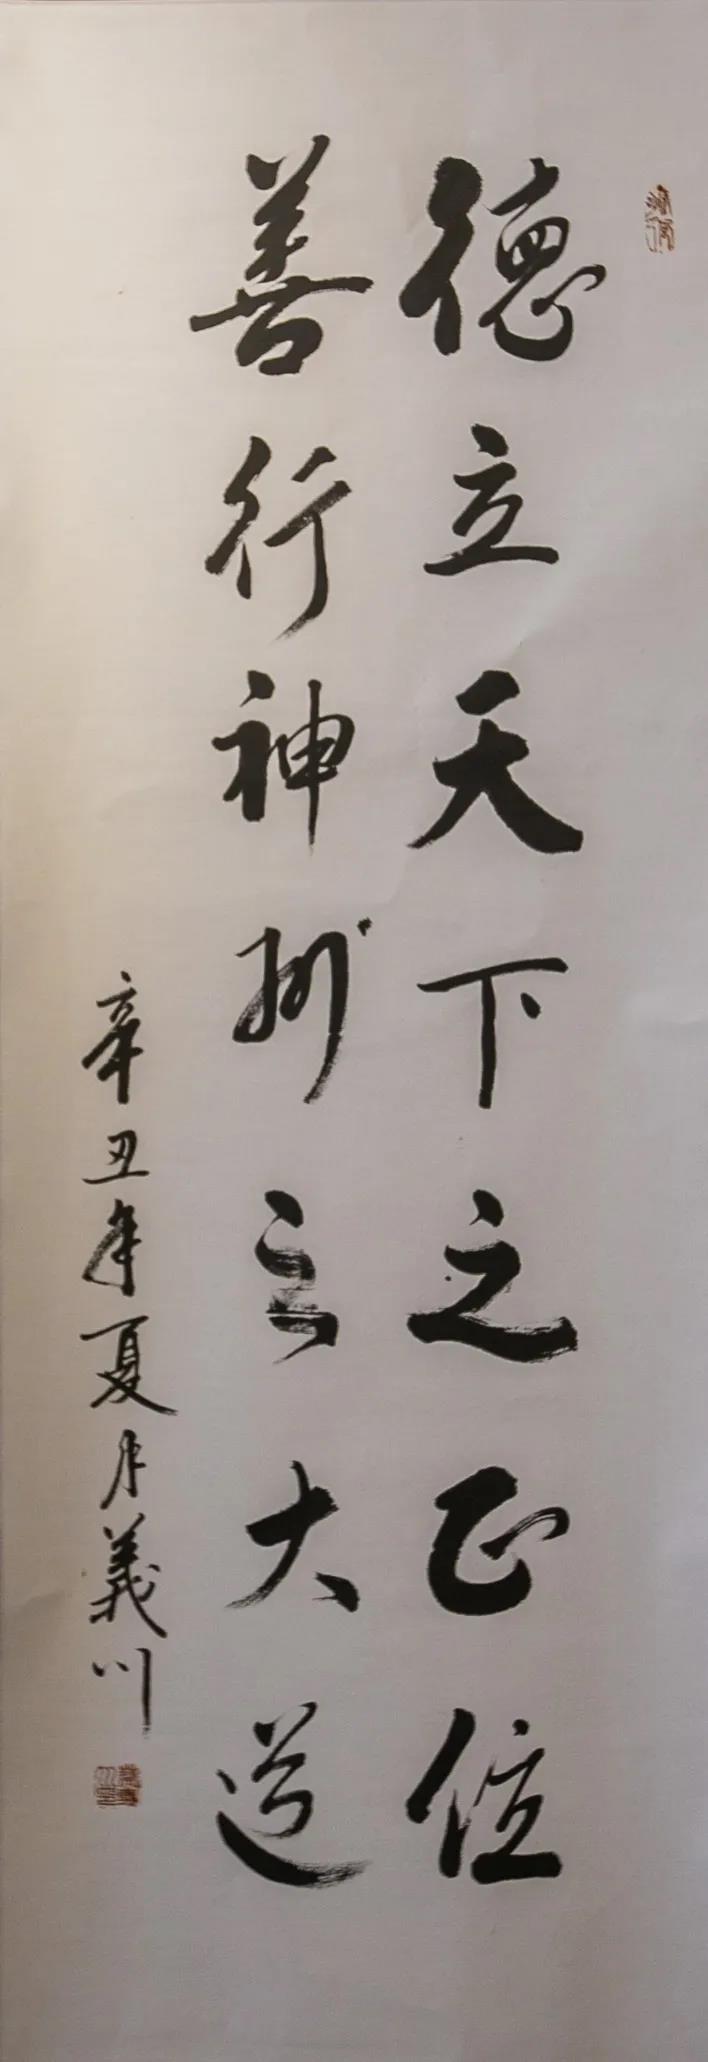 德立天下之正位
善行神州之大道
辛丑年夏月義川